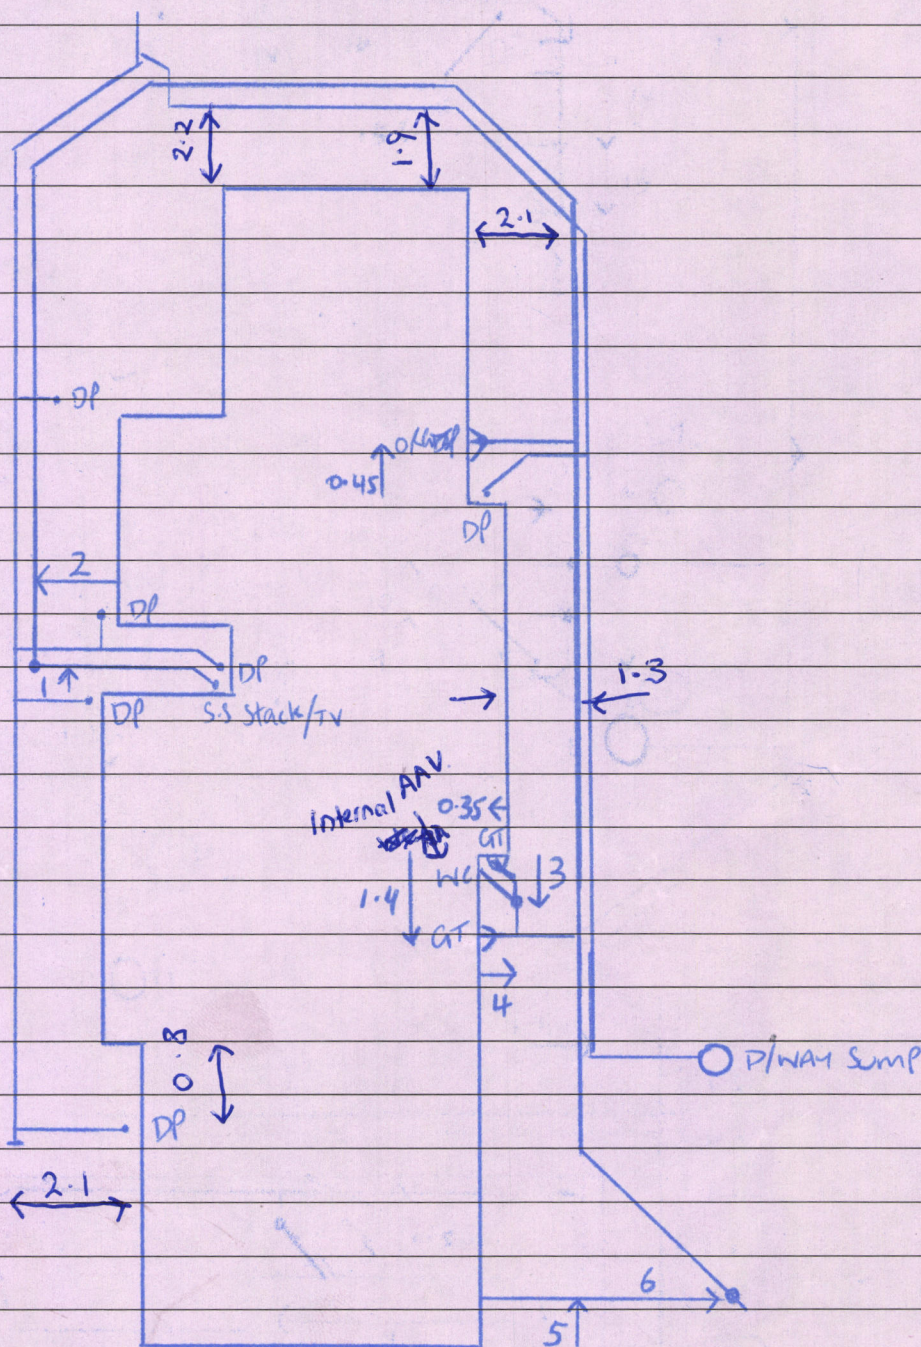 2.2
1.9
2.1
DP
0.45
DP
2
DP
DP
1
DP
S.S Stack/TV
1.3
Internal AAV
0.35
GT
WC
3
1.4
GT
4
0.8
D/WAY SUMP
DP
2.1
6
5